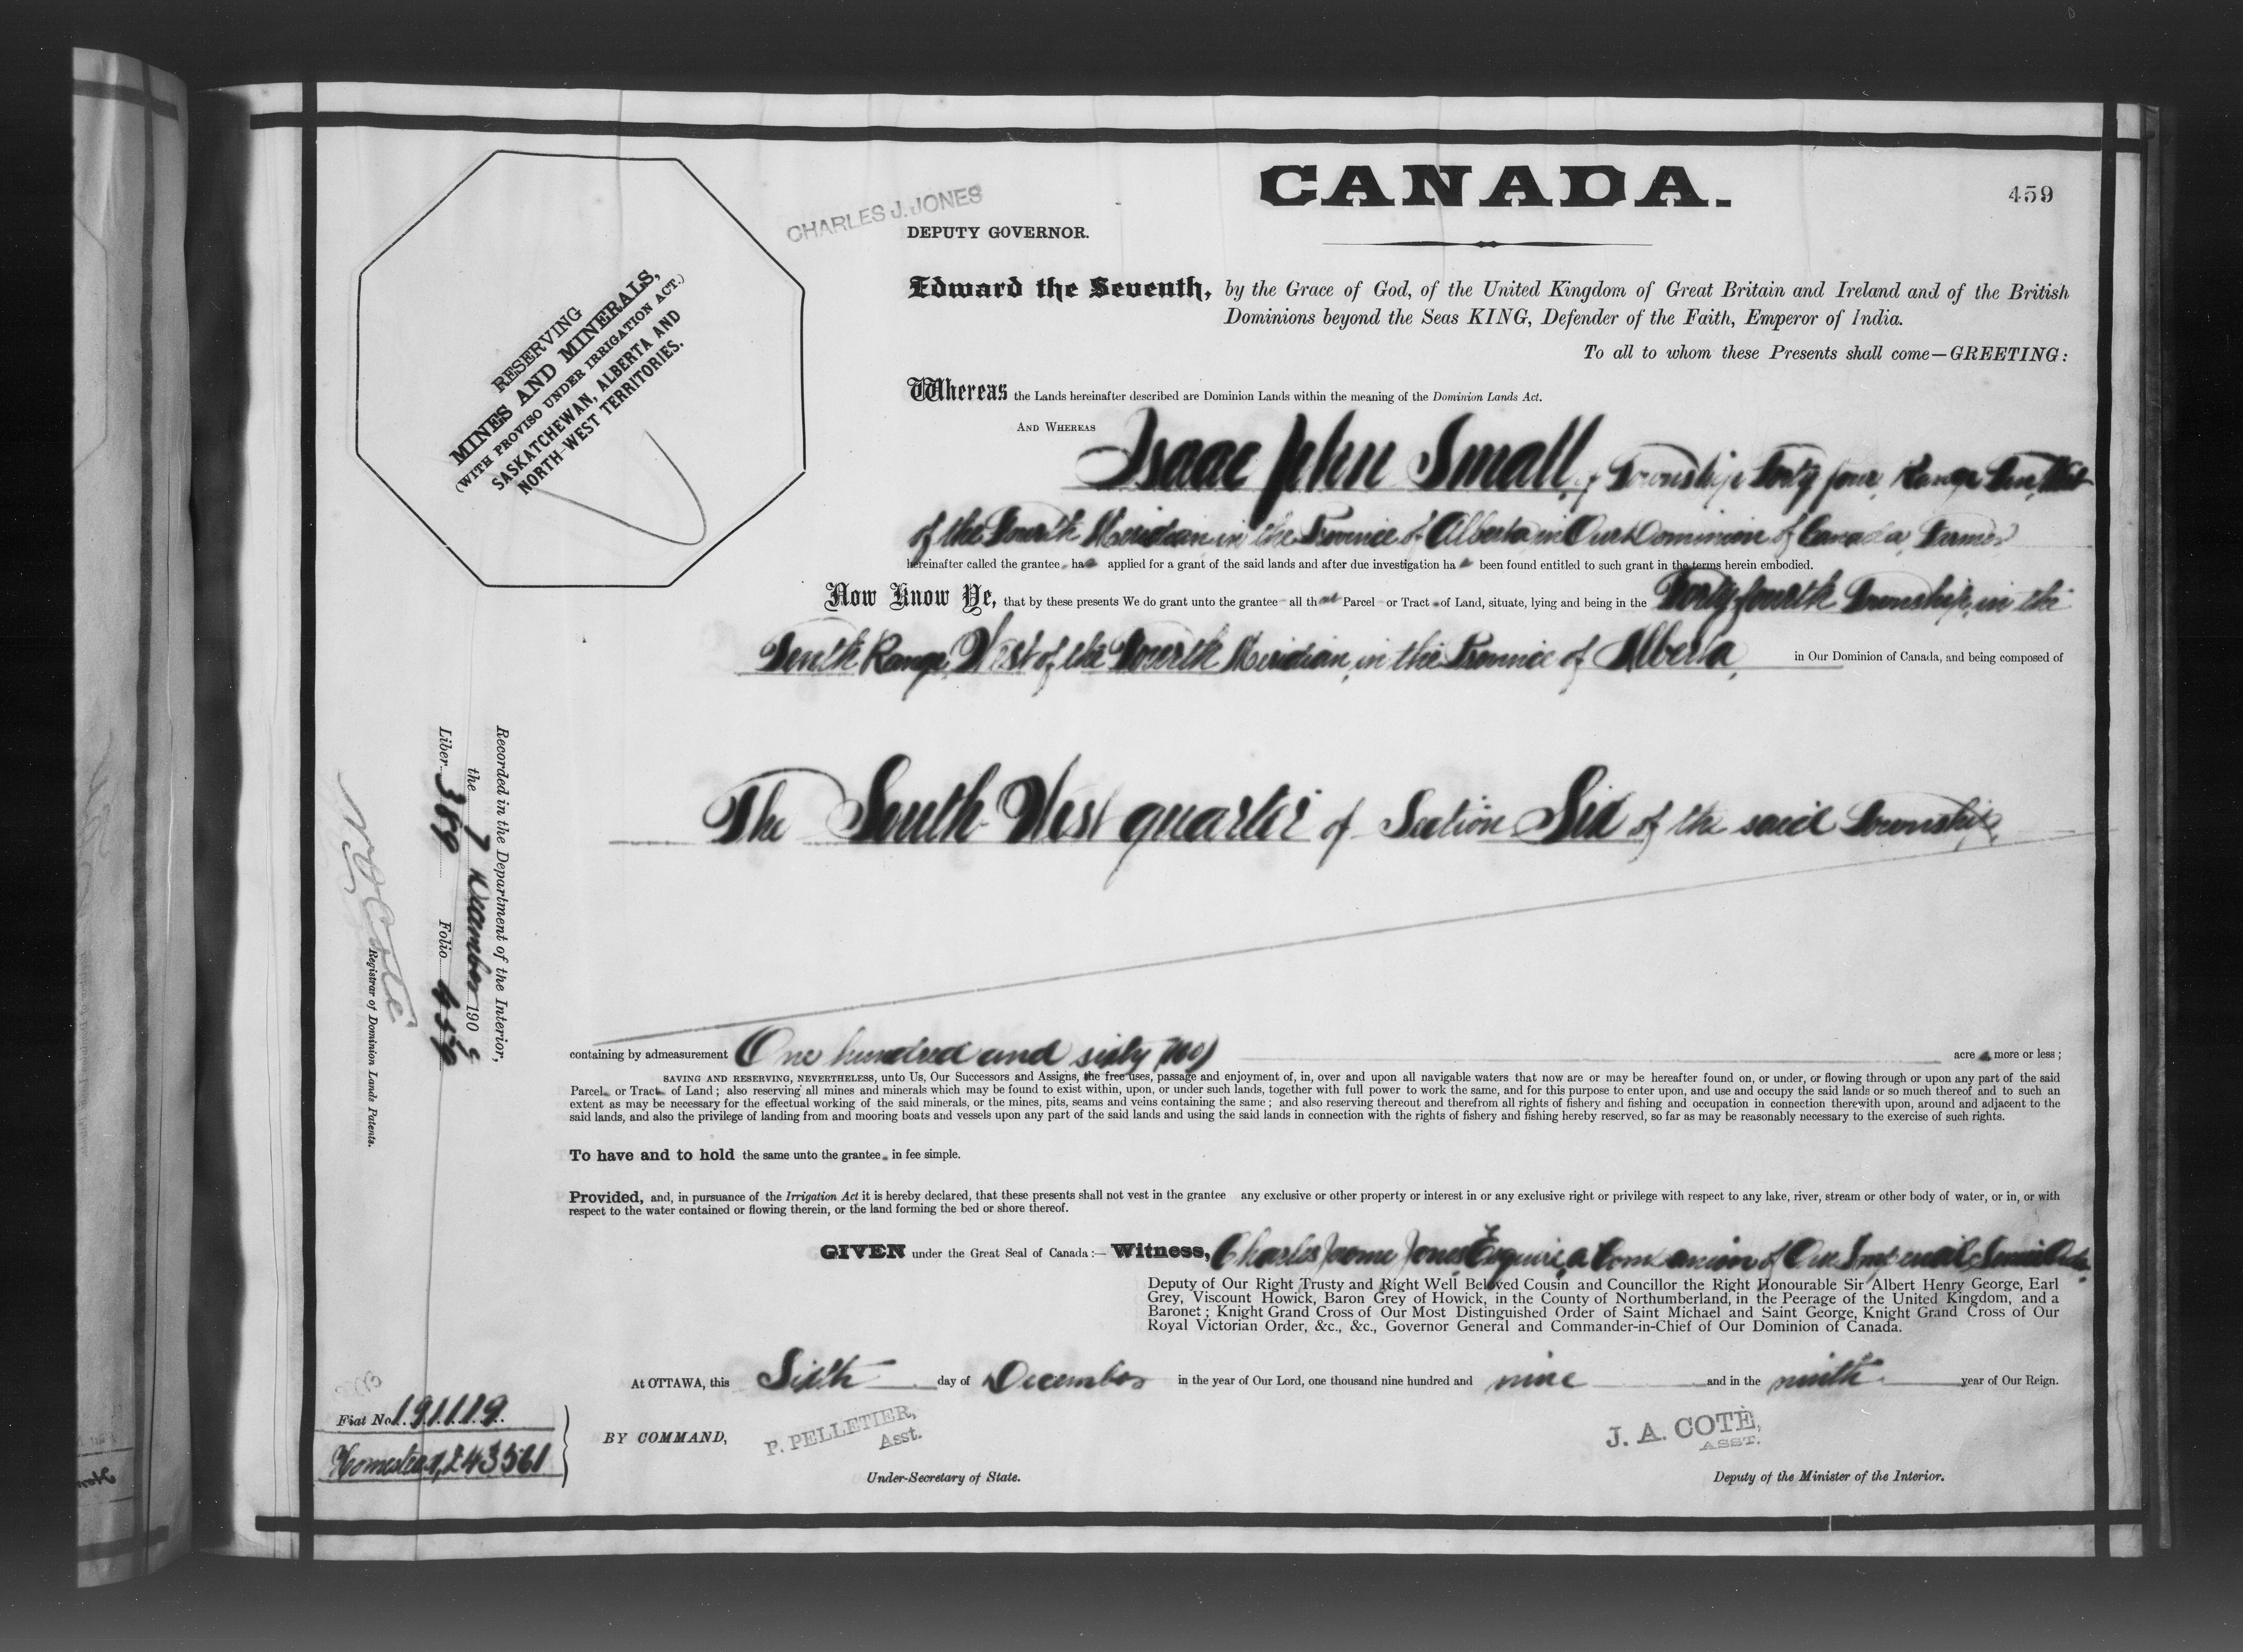 CANADA.
459
CHARLES J. JONES
DEPUTY GOVERNOR.
RESERVING
MINES AND MINERALS,
(WITH PROVISO UNDER IRRIGATION ACT.)
SASKATCHEWAN, ALBERTA AND
NORTH-WEST TERRITORIES.
Edward the Seventh, by the Grace of God, of the United Kingdom of Great Britain and Ireland and of the British
Dominions beyond the Seas KING, Defender of the Faith, Emperor of India.
To all to whom these Presents shall come—GREETING:
Whereas the Lands hereinafter described are Dominion Lands within the meaning of the Dominion Lands Act.
AND WHEREAS Isaac John Small, of Township Forty four, Range Ten, West
of the Fourth Meridian in the Province of Alberta in Our Dominion of Canada, Farmer
hereinafter called the grantee has applied for a grant of the said lands and after due investigation has been found entitled to such grant in the terms herein embodied.
Now Know Ye, that by these presents We do grant unto the grantee all that Parcel or Tract of Land, situate, lying and being in the Forty fourth Township, in the
Tenth Range, West of the Fourth Meridian, in the Province of Alberta, in Our Dominion of Canada, and being composed of
The South West quarter of Section Six of the said Township,
containing by admeasurement One hundred and sixty (160) acres more or less;
SAVING AND RESERVING, NEVERTHELESS, unto Us, Our Successors and Assigns, the free uses, passage and enjoyment of, in, over and upon all navigable waters that now are or may be hereafter found on, or under, or flowing through or upon any part of the said
Parcel or Tract of Land; also reserving all mines and minerals which may be found to exist within, upon, or under such lands, together with full power to work the same, and for this purpose to enter upon, and use and occupy the said lands or so much thereof and to such an
extent as may be necessary for the effectual working of the said minerals, or the mines, pits, seams and veins containing the same; and also reserving thereout and therefrom all rights of fishery and fishing and occupation in connection therewith upon, around and adjacent to the
said lands, and also the privilege of landing from and mooring boats and vessels upon any part of the said lands and using the said lands in connection with the rights of fishery and fishing hereby reserved, so far as may be reasonably necessary to the exercise of such rights.
To have and to hold the same unto the grantee in fee simple.
Provided, and, in pursuance of the Irrigation Act it is hereby declared, that these presents shall not vest in the grantee any exclusive or other property or interest in or any exclusive right or privilege with respect to any lake, river, stream or other body of water, or in, or with
respect to the water contained or flowing therein, or the land forming the bed or shore thereof.
GIVEN under the Great Seal of Canada:— Witness, Charles Jones Esquire, a Companion of Our Imperial Service Order,
Deputy of Our Right Trusty and Right Well Beloved Cousin and Councillor the Right Honourable Sir Albert Henry George, Earl
Grey, Viscount Howick, Baron Grey of Howick, in the County of Northumberland, in the Peerage of the United Kingdom, and a
Baronet; Knight Grand Cross of Our Most Distinguished Order of Saint Michael and Saint George, Knight Grand Cross of Our
Royal Victorian Order, &c., &c., Governor General and Commander-in-Chief of Our Dominion of Canada.
At OTTAWA, this Sixth day of December in the year of Our Lord, one thousand nine hundred and nine and in the ninth year of Our Reign.
BY COMMAND,
P. PELLETIER,
Asst.
Under-Secretary of State.
J. A. COTÉ,
ASST.
Deputy of the Minister of the Interior.
Recorded in the Department of the Interior,
the 7 December 1909
Liber 369 Folio 459
Registrar of Dominion Lands Patents.
Fiat No. 191119
Homestead, 243561